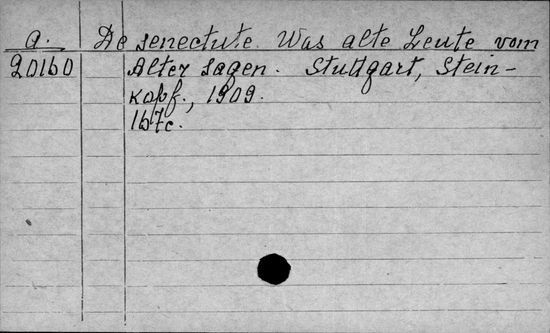 a. De senectute. Was alte Leute vom
20160 Alter sagen. Stuttgart, Stein-
kopf., 1909.
167c.